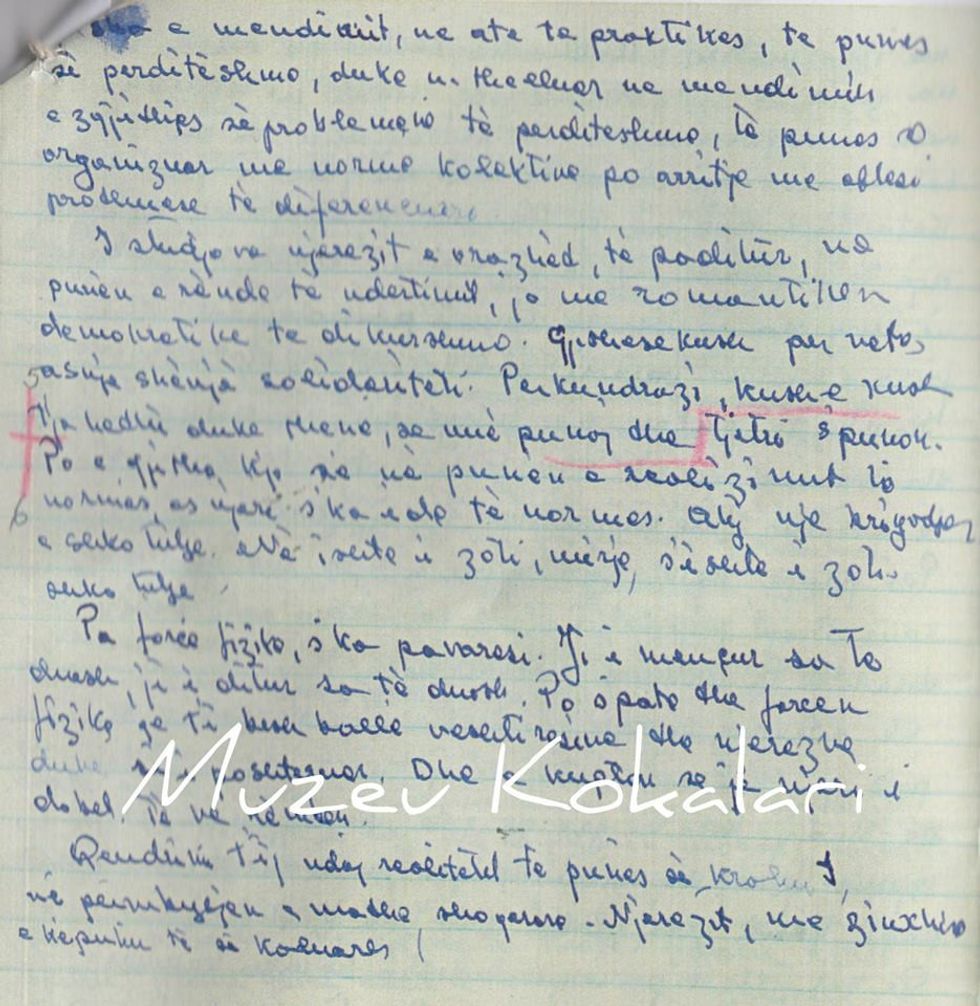 e mendimit, ne ate te praktikes, te punes
së perditëshme, duke u thelluar ne mendimin
e zgjidhjes së problemeve të perditeshme, të punes
organizuar me norme kolektive po arritje me aftesi
proteniese të diferencuara
I studjova njerezit e vrazhdë, të paditur, në
punën e rënde të ndertimit, jo me romantiken
demokratike te dikurshme. Gjithesekush per vete,
asnje shënjë solidariteti. Perkundrazi, kush e kush
t'ja hedhi duke thene, se unë punoj dhe tjetri s'punon.
Po e gjitha kjo se në punën e realizimit të
normës, as njeri s'ka ide të normes. Aty nje
e seiko tutje. Në i seite i zoti, mirje, s'i seite i zoti
seiko tutje
Pa force fizike, s'ka pavaresi. Ji i mençur sa te
duash, ji i ditur sa të duash. Po s'pate dhe forcen
fizike qe t'i besh ballë veshtiresive dhe njerezve
duke
dobet, të
Muzeu Kokalari
Qendrimi i tij ndaj realitetit te punes së krahut,
në përmbysjen e madhe shoqerore. Njerezit, me zinxhire
e këputur të së kaluares